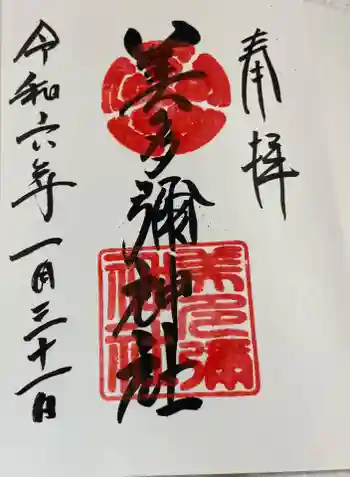 奉拝
美多彌神社
美多彌神社
令和六年一月三十一日